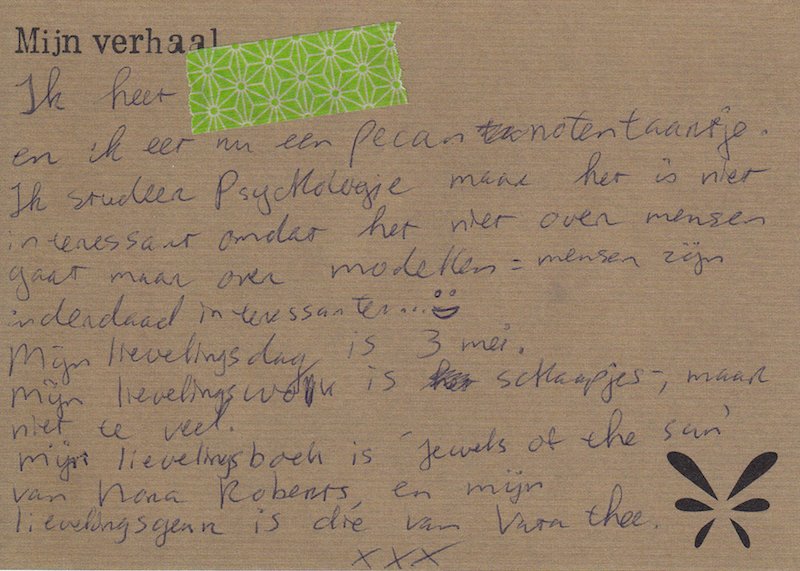 Mijn verhaal
Ik heet
en ik eet nu een pecannotentaartje.
Ik studeer Psychologie maar het is niet
interessant omdat het niet over mensen
gaat maar over modellen = mensen zijn
inderdaad interessanter...
Mijn lievelingsdag is 3 mei.
mijn lievelingswolk is schaapjes-, maar
niet te veel.
mijn lievelingsboek is 'jewels of the sun'
van Nora Roberts, en mijn
lievelingsgeur is die van Vara thee.
xxx